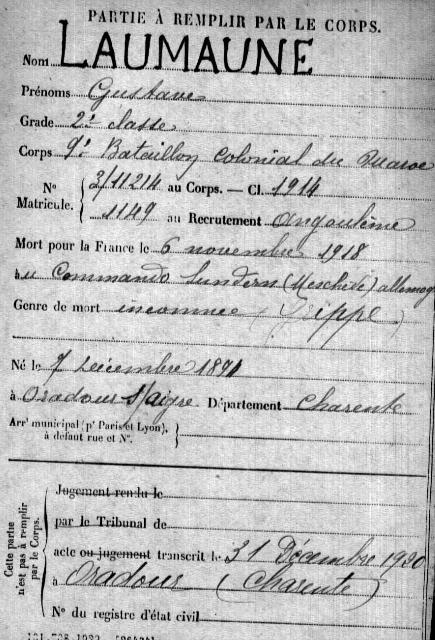 PARTIE À REMPLIR PAR LE CORPS.
Nom LAUMAUNE
Prénoms Gustave
Grade 2e classe
Corps 9e Bataillon Colonial du Maroc
N° Matricule. 3/11214 au Corps. — Cl. 1914
1149 au Recrutement Angoulême
Mort pour la France le 6 novembre 1918
au Commando Sundern (Meschede) allemag
Genre de mort inconnue (Grippe)
Né le 7 Décembre 1894
à Oradour s/aigre Département Charente
Arrt municipal (pr Paris et Lyon), à défaut rue et N°.
Cette partie n'est pas à remplir par le Corps.
Jugement rendu le
par le Tribunal de
acte ou jugement transcrit le 31 Décembre 1920
à Oradour (Charente)
N° du registre d'état civil